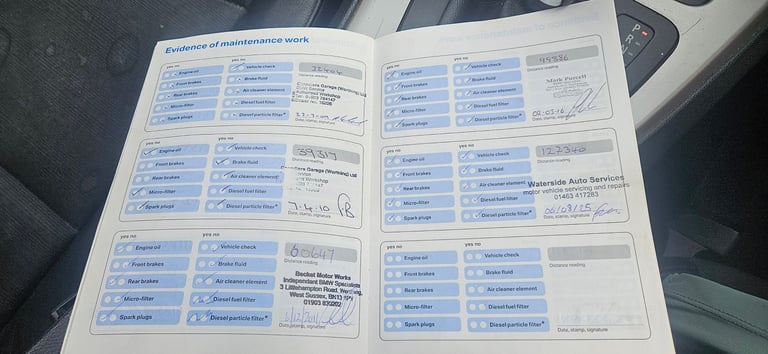 Evidence of maintenance work
yes no
yes no
Engine oil
Vehicle check
Front brakes
Brake fluid
Rear brakes
Air cleaner element
Micro-filter
Diesel fuel filter
Spark plugs
Diesel particle filter*
Distance reading
Garage (Worthing) Ltd
Authorised Workshop
Date, stamp, signature
yes no
yes no
Engine oil
Vehicle check
Front brakes
Brake fluid
Rear brakes
Air cleaner element
Micro-filter
Diesel fuel filter
Spark plugs
Diesel particle filter*
39317
Distance reading
Garage (Worthing) Ltd
Workshop
7.4.10
Date, stamp, signature
yes no
yes no
Engine oil
Vehicle check
Front brakes
Brake fluid
Rear brakes
Air cleaner element
Micro-filter
Diesel fuel filter
Spark plugs
Diesel particle filter*
60647
Distance reading
Becket Motor Works
Independent BMW Specialists
3 Littlehampton Road, Worthing,
West Sussex, BN13
01903
Date, stamp, signature
yes no
yes no
Engine oil
Vehicle check
Front brakes
Brake fluid
Rear brakes
Air cleaner element
Micro-filter
Diesel fuel filter
Spark plugs
Diesel particle filter*
Distance reading
Mark Purcell
Date, stamp, signature
yes no
yes no
Engine oil
Vehicle check
Front brakes
Brake fluid
Rear brakes
Air cleaner element
Micro-filter
Diesel fuel filter
Spark plugs
Diesel particle filter*
127340
Waterside Auto Services
motor vehicle servicing and repairs
01463 417283
06/08/25
Date, stamp, signature
yes no
yes no
Engine oil
Vehicle check
Front brakes
Brake fluid
Rear brakes
Air cleaner element
Micro-filter
Diesel fuel filter
Spark plugs
Diesel particle filter*
Distance reading
Date, stamp, signature
P
R
N